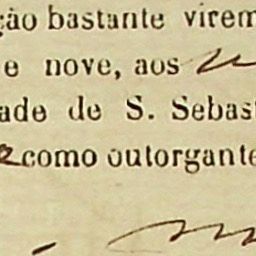 ção bastante virem
e nove, aos
ade de S. Sebast
como outorgante